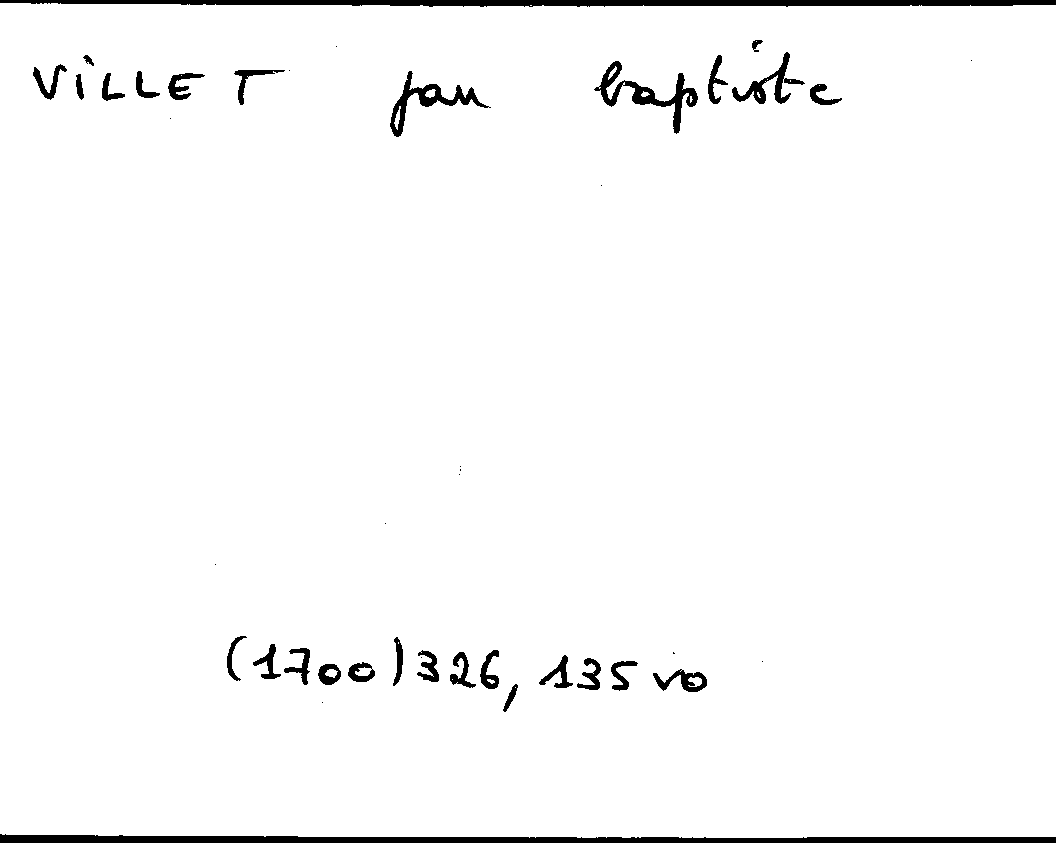 VILLET jan baptiste
(1700) 326, 135 vo